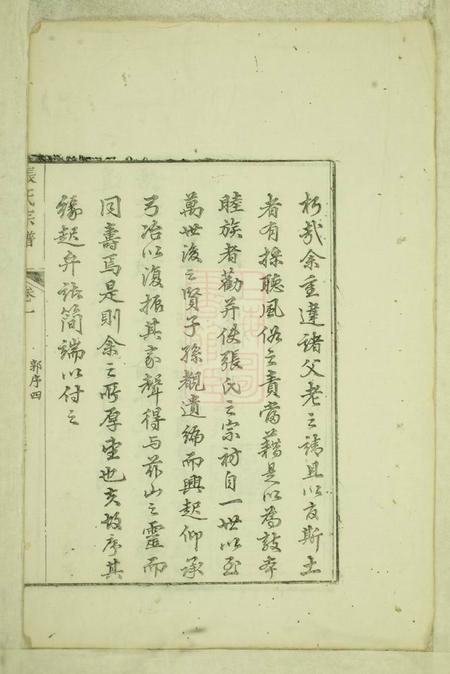 朽哉余重違諸父老之請且以宰斯土
者有採聽風俗之責當藉是以為敦本
睦族者勸并使張氏之宗祊自一世以至
萬世後之賢子孫觀遺編而興起仰承
弓冶以復振其家聲得与茲山之靈而
同壽焉是則余之所厚望也夫故序其
緣起弁諸簡端以付之
張氏宗譜
卷一
郭序四